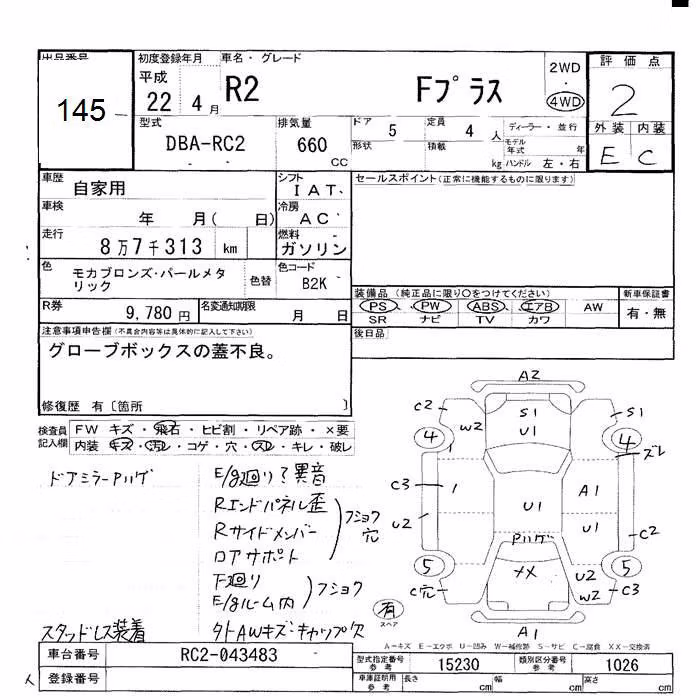 出品番号
145
初度登録年月
平成
22 4 月
車名・グレード
R2 Fプラス
2WD
・
4WD
評価点
2
外装 内装
E C
型式
DBA-RC2
排気量
660
CC
ドア 5
定員 4 人
ディーラー・並行
形状
積載 kg
モデル年式 年
ハンドル 左・右
車歴
自家用
シフト
IAT
セールスポイント(正常に機能するものに限ります)
車検
年 月( 日)
冷房
AC
走行
8万7千313 km
燃料
ガソリン
色
モカブロンズ・パールメタリック
色替
色コード
B2K
装備品 (純正品に限り○をつけてください)
PS PW ABS エアB AW
SR ナビ TV カワ
新車保証書
有・無
R券
9,780 円
名変通知期限
月 日
後日品
注意事項申告欄(不具合内容等は具体的に記入して下さい)
グローブボックスの蓋不良。
修復歴 有〔箇所 〕
検査員記入欄
FW キズ・飛石・ヒビ割・リペア跡・×要
内装 キズ・汚レ・コゲ・穴・スレ・キレ・破レ
ドアミラーPハゲ
E/g廻り?異音
Rエンドパネル歪
Rサイドメンバー
ロアサポート
フショク穴
下廻り
E/gルーム内
フショク
スタッドレス装着
外AWキズ・キャップ欠
A2
C2
W2
S1
U1
S1
4
4
ズレ
C3
1
U1
A1
U2
U1
C2
Pハゲ
5
5
XX
U2
W2
C穴
C3
有
スペア
A1
A=キズ E=エクボ U=凹み W=補修跡 S=サビ C=腐食 XX=交換済
車台番号
RC2-043483
型式指定番号
参考
15230
類別区分番号
参考
1026
登録番号
車庫証明用
参考
長さ cm
幅 cm
高さ cm